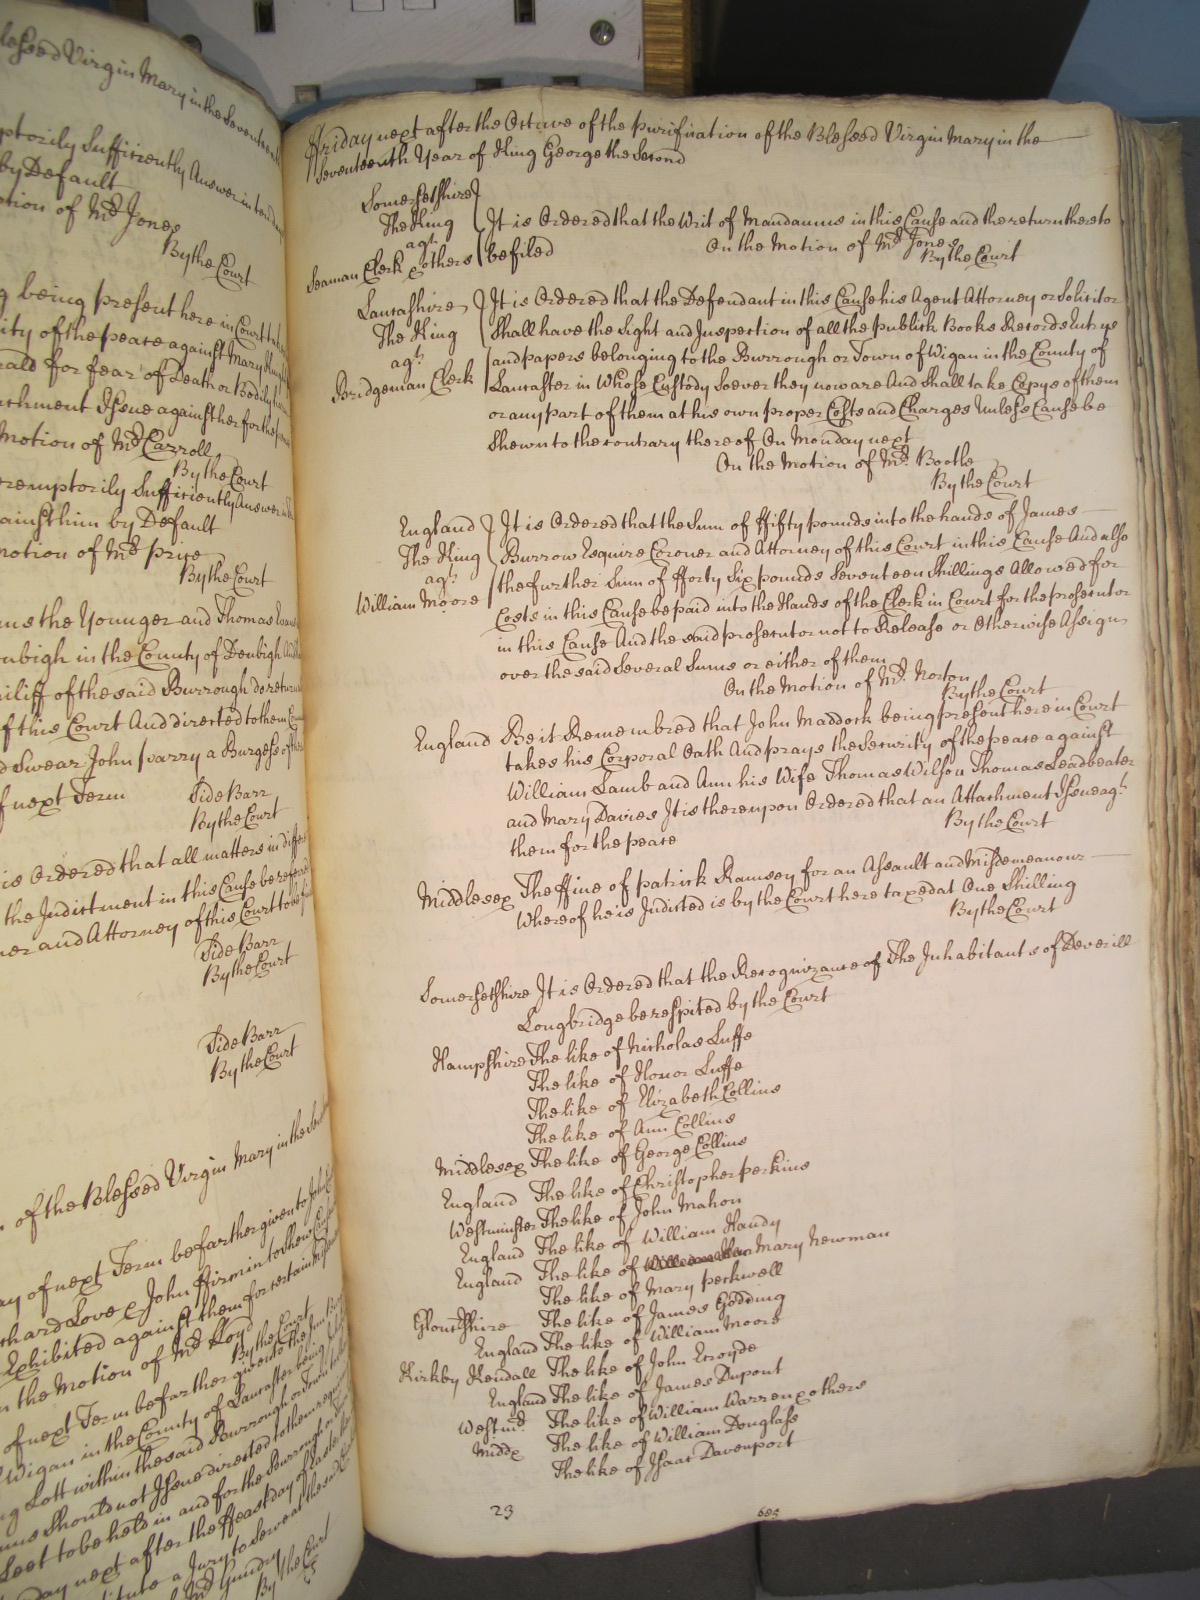 blessed Virgin Mary in the Seventeenth
ptorily Sufficiently Answer
by Default
otion of Mr. Jones
By the Court
g being present here in Court
ity of the peace against Mary
ald for fear of Death or Bodily
achment Issue against her for the
Motion of Mr. Carroll
By the Court
eremptorily Sufficiently Answer
ainst him by Default
Motion of Mr. price
By the Court
ms the Younger and Thomas
nbigh in the County of Denbigh
ailiff of the said Burrough do return
of this Court And directed to them
d Swear John parry a Burgess of
of next Term
Side Barr
By the Court
is Ordered that all matters in
the Indictment in this Cause be
ner and Attorney of this Court to
Side Barr
By the Court
Side Barr
By the Court
of the Blessed Virgin Mary in the
ay of next Term be farther given to
chard Love & John ffirmin to shew
Exhibited against them for certain
n the Motion of Mr.
By the Court
of next Term be farther given to the
Wigan in the County of Lancaster being
g Lott within the said Burrough or Town
mus should not Issue directed to them
Leet to be held in and for the Burrough
day next after the ffeast day of
a Jury to Serve at the said
Mr. Gundry
By the Court
ffriday next after the Octave of the purification of the Blessed Virgin Mary in the
Seventeenth Year of King George the Second
Somersetshire
The King
agt.
Seaman Clerk & others
It is Ordered that the Writ of Mandamus in this Cause and the return thereto
be filed
On the Motion of Mr. Jones
By the Court
Lancashire
The King
agt.
Bridgeman Clerk
It is Ordered that the Defendant in this Cause his Agent Attorney or Solicitor
Shall have the Sight and Inspection of all the publick Books Records Entrys
and papers belonging to the Burrough or Town of Wigan in the County of
Lancaster in Whose Custody Soever they now are And shall take Copys of them
or any part of them at his own proper Costs and Charges Unless Cause be
Shewn to the contrary thereof On Monday next
On the Motion of Mr. Bootle
By the Court
England
The King
agt.
William Moore
It is Ordered that the Sum of ffifty pounds into the hands of James
Burrow Esquire Coroner and Attorney of this Court in this Cause And also
the further Sum of fforty Six pounds Seventeen Shillings Allowed for
Costs in this Cause be paid into the Hands of the Clerk in Court for the prosecutor
in this Cause And the said prosecutor not to Release or Otherwise Assign
over the said Several Sums or either of them
On the Motion of Mr. Norton
By the Court
England Be it Remembred that John Maddock being present here in Court
takes his Corporal Oath And prays the Security of the peace against
William Lamb and Ann his Wife Thomas Wilson Thomas Leadbeater
and Mary Davies It is thereupon Ordered that an Attachment Issue agt.
them for the peace
By the Court
Middlesex The ffine of patrick Ramsey for an Assault and Misdemeanour
Whereof he is Indicted is by the Court here taxed at One Shilling
By the Court
Somersetshire It is Ordered that the Recognizance of The Inhabitants of Deverill
Longbridge be respited by the Court
Hampshire The like of Nicholas Luffe
The like of Honor Luffe
The like of Elizabeth Collins
The like of Ann Collins
Middlesex The like of George Collins
England The like of Christopher perkins
Westminster The like of John Mahon
England The like of William Handy
England The like of Mary Newman
The like of Mary peckwell
Gloucestshire The like of James Godding
England The like of William Moore
Kirkby Kendall The like of John Croyde
England The like of James Dupont
Westmr. The like of William Warren & others
Middx The like of William Douglass
The like of Isaac Davenport
23
685